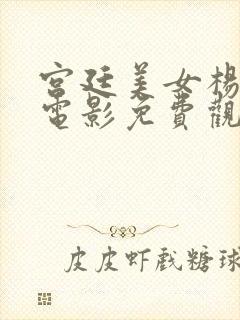 宫廷美女楊
電影免費觀
皮皮虾戲糖球